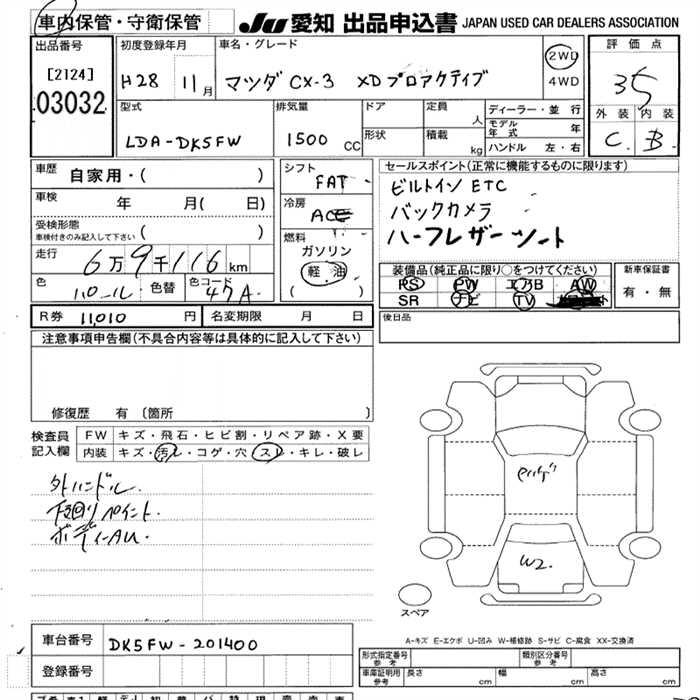 車内保管・守衛保管 JU 愛知 出品申込書 JAPAN USED CAR DEALERS ASSOCIATION
出品番号 初度登録年月 車名・グレード 評価点
[2124] H28 11月 マツダ CX-3 XDプロアクティブ 2WD 4WD 35
03032
型式 排気量 ドア 定員 人 ディーラー・並行 外装 内装
LDA-DK5FW 1500 CC 形状 積載 kg モデル年式 年 C B
ハンドル 左・右
車歴 自家用・( ) シフト FAT セールスポイント(正常に機能するものに限ります)
車検 年 月( 日) 冷房 AC ビルトインETC
受検形態 車検付きのみ記入して下さい ( ) 燃料 ガソリン バックカメラ
走行 6万9千116km 軽油 ( ) ハーフレザーシート
色 色替 色コード 47A 装備品(純正品に限り○をつけてください) 新車保証書
PS PW エアB AW 有・無
SR ナビ TV
R券 11,010 円 名変期限 月 日 後日品
注意事項申告欄(不具合内容等は具体的に記入して下さい)
修復歴 有 〔箇所 〕
検査員記入欄 FW キズ・飛石・ヒビ割・リペア跡・X要
内装 キズ・汚レ・コゲ・穴・スレ・キレ・破レ
外ハンドル.
下廻りペイント.
ボディーAU.
W2.
スペア
A-キズ E-エクボ U-凹み W-補修跡 S-サビ C-腐食 XX-交換済
車台番号 DK5FW-201400 形式指定番号 参考 類別区分番号 参考
登録番号 車庫証明用 参考 長さ cm 幅 cm 高さ cm